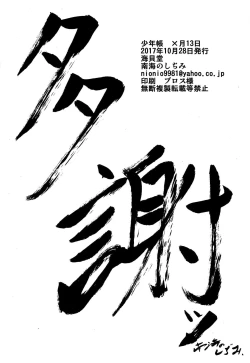 少年帳　×月13日
2017年10月28日発行
海貝堂
南海のしぢみ
nionio9981@yahoo.co.jp
印刷　プロス様
無断複製転載等禁止
多謝ッ